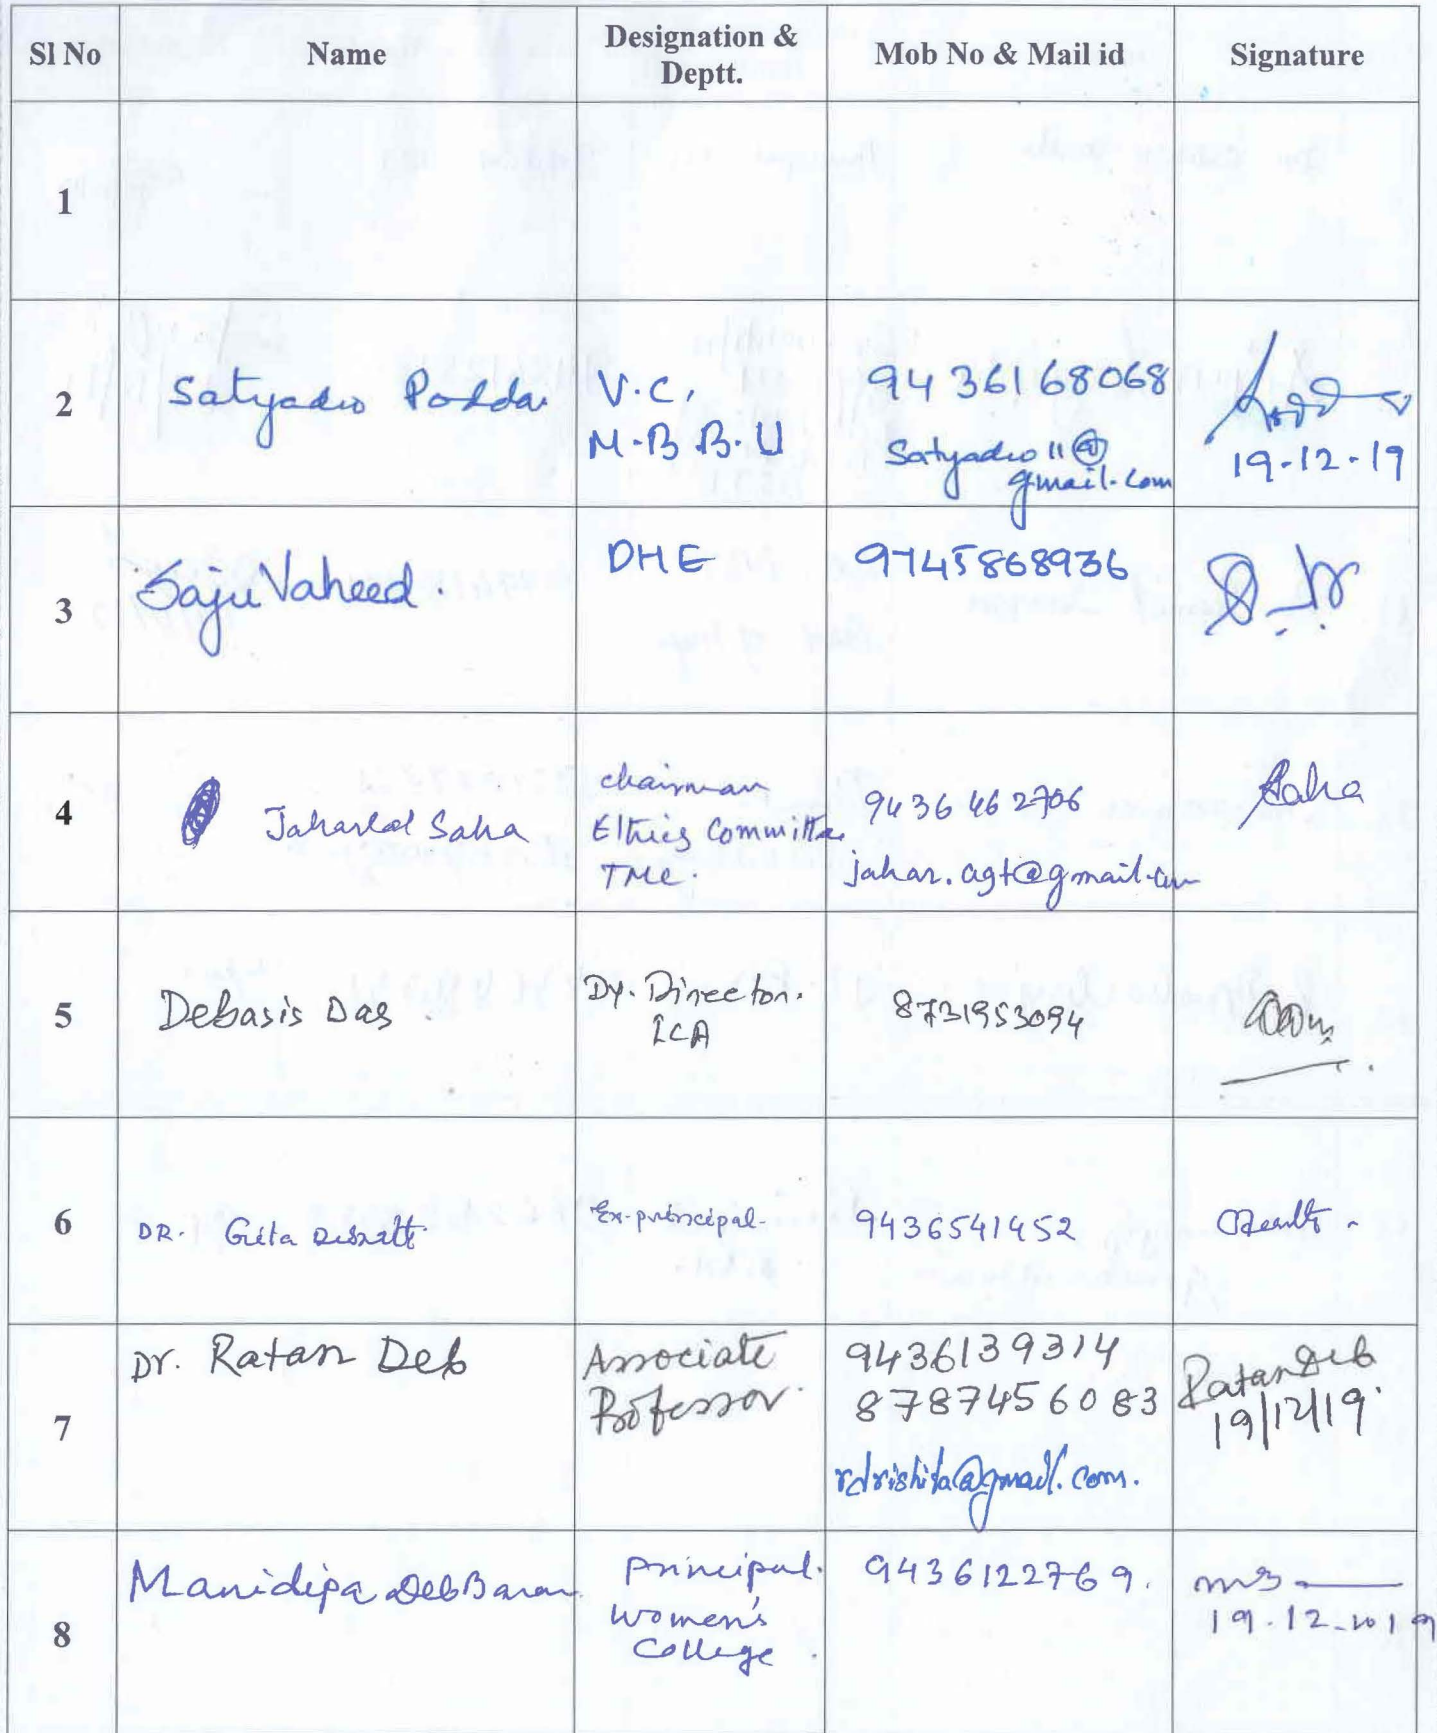 Sl No
Name
Designation &
Deptt.
Mob No & Mail id
Signature
1
2
Satyadeo Poddar
V.C,
M.B B.U
94 36168068
Satyadeo11@
gmail.com
19-12-19
3
Saju Vaheed.
DHE
9745868936
4
Jaharlal Saha
chairman
Ethics Committee
TMC.
9436462706
jahar.agt@gmail.com
Saha
5
Debasis Das
Dy. Director.
ICA
8731953094
6
DR. Gita
Ex-principal.
9436541452
7
Dr. Ratan Deb
Associate
Professor.
9436139314
8787456083
rdrishita@gmail.com.
Ratan Deb
19/12/19.
8
Manidipa DebBarma
Principal.
Women's
College.
9436122769.
19.12.2019